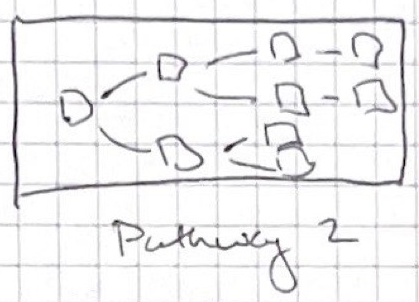 Pathway 2